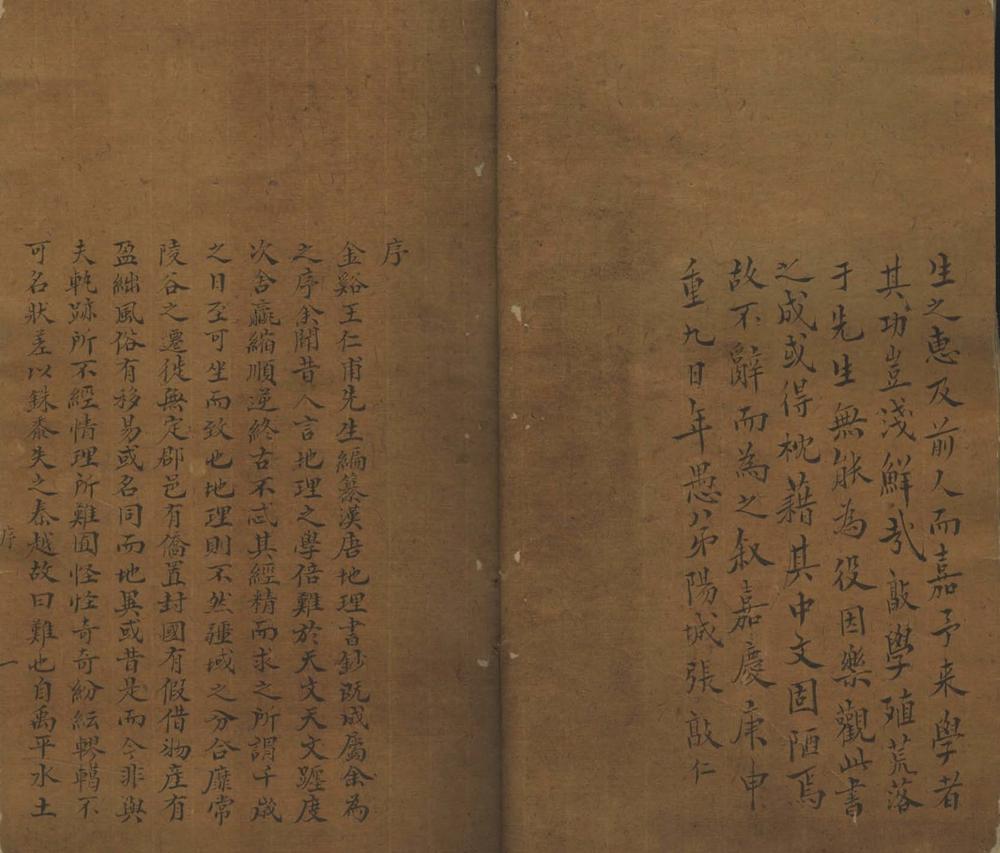 生之惠及前人而嘉予来學者
其功豈淺鮮哉敱學殖荒落
于先生無能為役因樂觀此書
之成或得枕藉其中文固陋焉
故不辭而為之叙嘉慶庚申
重九日年愚弟陽城張敱仁
序
金谿王仁甫先生編纂漢唐地理書鈔既成屬余為
之序余聞昔人言地理之學倍難於天文天文躔度
次舍贏縮順逆終古不忒其經精而求之所謂千歲
之日至可坐而致也地理則不然疆域之分合靡常
陵谷之遷徙無定郡邑有僑置封國有假借物產有
盈絀風俗有移易或名同而地異或昔是而今非與
夫軌跡所不經情理所難囿怪怪奇奇紛紜轇轕不
可名狀差以銖黍失之秦越故曰難也自禹平水土
序
一